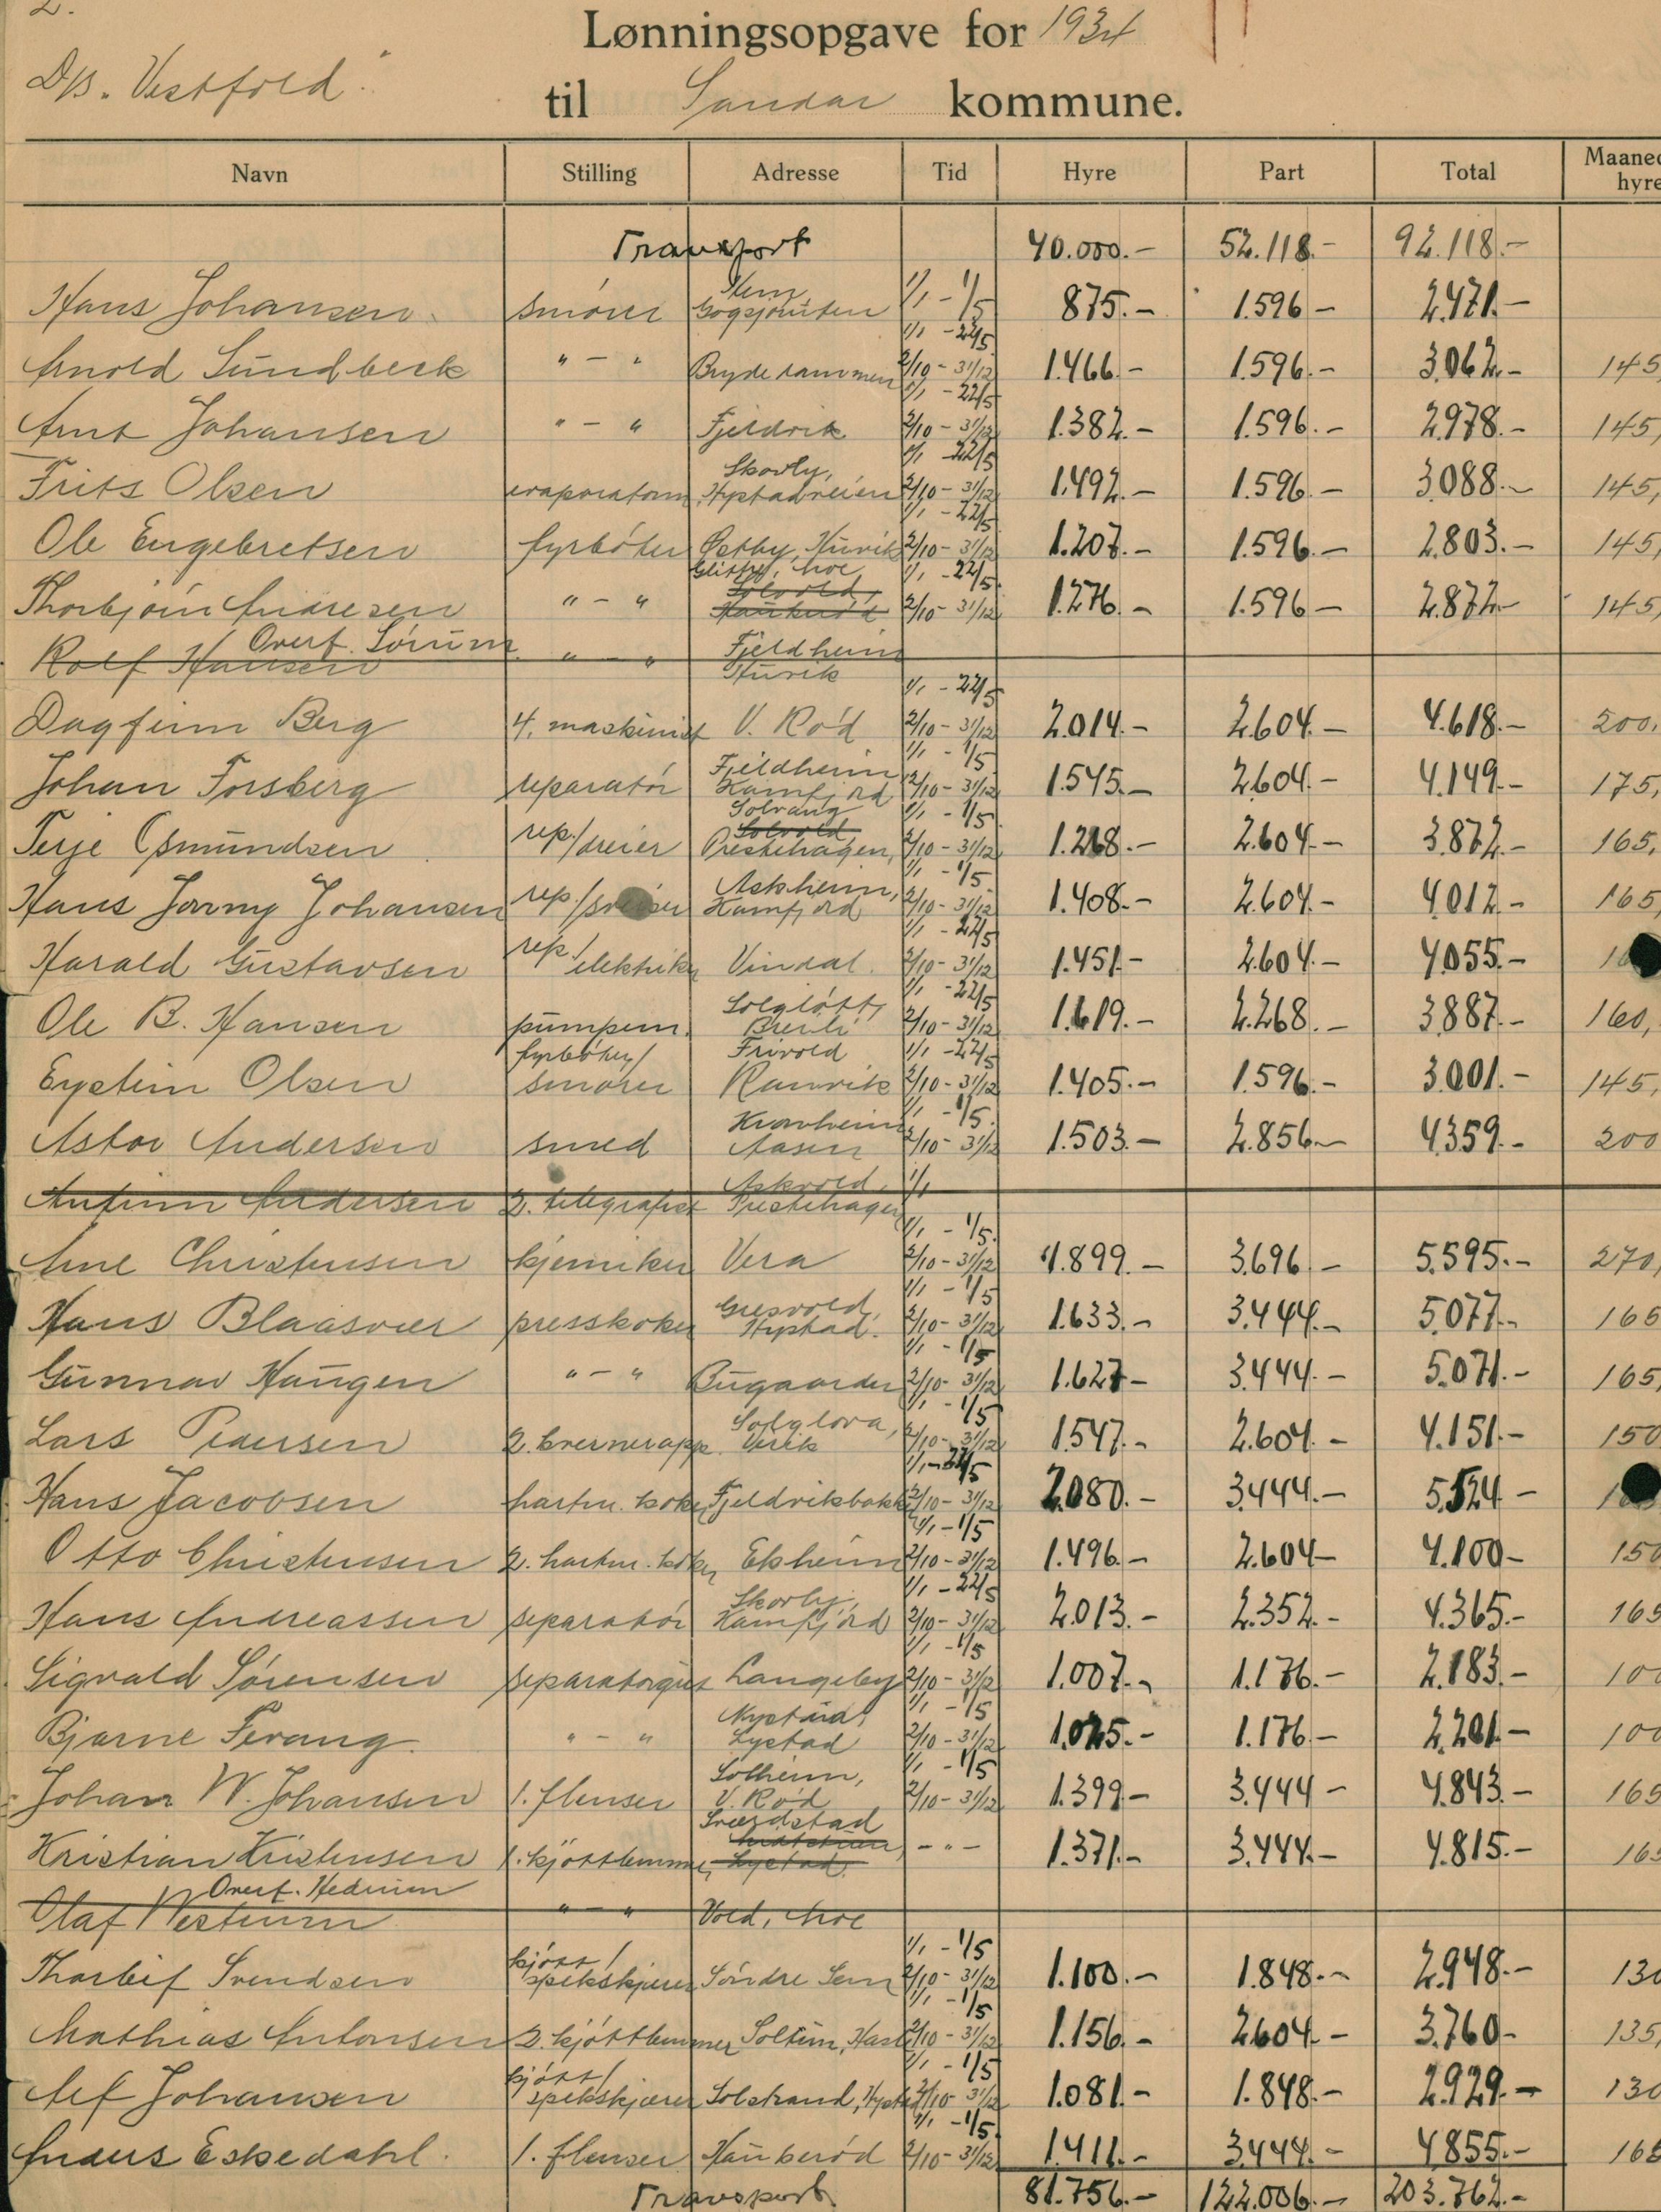 2.
Lønningsopgave for 1934
D/S. "Vestfold"
til Sandar kommune.
Navn Stilling Adresse Tid Hyre Part Total Maaned hyre
Transport 40.000.- 52.118.- 92.118.-
Hans Johansen smører Gogsjøruten 1/1 - 1/5 875.- 1.596 - 2.471.-
1/1 - 22/5
Arnold Sundbeck " - " Bryderammen 2/10 - 31/12 1.466.- 1.596.- 3.062.- 145,
1/1 - 22/5
Arnt Johansen " - " Fjeldvik 2/10 - 31/12 1.382.- 1.596.- 2.978.- 145,
Skovly, 1/1 - 22/5
Frits Olsen evaporatorm. Hystadveien 2/10 - 31/12 1.492.- 1.596.- 3.088.- 145,
1/1 - 22/5
Ole Engebretsen fyrbøter Østby, Huvik 2/10 - 31/12 1.207.- 1.596.- 2.803.- 145,
Moe 1/1 - 22/5
Solvold,
Thorbjørn Andresen " - " Haukerød 2/10 - 31/12 1.276.- 1.596 - 2.872.- 145,
Overf. Sørum Fjeldheim
Rolf Hansen " - " Huvik
1/1 - 22/5
Dagfinn Berg 4. maskinist V. Rød 2/10 - 31/12 2.014.- 2.604.- 4.618.- 200,
Fjeldheim 1/1 - 1/5
Johan Forsberg reparatør Kamfjord 2/10 - 31/12 1.545.- 2.604.- 4.149.- 175,
Solvang 1/1 - 1/5
Solvold
Terje Osmundsen rep./dreier Prestehagen, 2/10 - 31/12 1.268.- 2.604.- 3.872.- 165,
Askheim, 1/1 - 1/5
Hans Jonny Johansen rep./ Kamfjord 2/10 - 31/12 1.408.- 2.604.- 4.012.- 165,
1/1 - 22/5
Harald Gustavsen rep/elektriker Vindal. 2/10 - 31/12 1.451.- 2.604.- 4.055.-
Solgløtt, 1/1 - 22/5
Ole B. Hansen pumpem. Breili 2/10 - 31/12 1.619.- 2.268.- 3.887.- 160,
fyrbøter/ Frivold 1/1 - 22/5
Eystein Olsen smører Ramvik 2/10 - 31/12 1.405.- 1.596.- 3.001.- 145,
1/1 - 1/5
Astor Andersen smed Aasen 2/10 - 31/12 1.503.- 2.856.- 4.359.- 200
Askvold, 1/1
Anfinn Andersen 2. telegrafist Prestehagen
1/1 - 1/5
Arne Christensen kjemiker Vera 2/10 - 31/12 1.899.- 3.696.- 5.595.- 270,
1/1 - 1/5
Hans Blaasvær presskoker Hystad. 2/10 - 31/12 1.633.- 3.444.- 5.077.- 165
1/1 - 1/5
Gunnar Haugen " - " Bugaarden 2/10 - 31/12 1.627.- 3.444.- 5.071.- 165,
1/1 - 1/5
Lars Pedersen 2. kvernerapp. Virik 2/10 - 31/12 1.547.- 2.604.- 4.151.- 150
1/1 - 22/5
Hans Jacobsen hartm. koker Fjeldvikbakk. 2/10 - 31/12 2.080.- 3.444.- 5.524.-
1/1 - 1/5
Otto Christensen 2. hartm. koker Ekheim 2/10 - 31/12 1.496.- 2.604.- 4.100.- 150
Skovly, 1/1 - 22/5
Hans Andreassen separatør Kamfjord 2/10 - 31/12 2.013.- 2.352.- 4.365.- 165
1/1 - 1/5
Sigvald Sørensen separatorgut Langeby 2/10 - 31/12 1.007.- 1.176.- 2.183.- 100
1/1 - 1/5
Bjarne Ferang " - " Lystad 2/10 - 31/12 1.025.- 1.176.- 2.201.- 100
Solheim, 1/1 - 1/5
Johan W. Johansen 1. flenser V. Rød 2/10 - 31/12 1.399.- 3.444.- 4.843.- 165
Sverdstad
Kristian Kristensen 1. kjøttlemmer, Lystad. - " - 1.371.- 3.444.- 4.815.- 165
Overf. Hedrum
Olaf Westrum " - " Vold, Moe
kjøtt/ 1/1 - 1/5
Thorleif Svendsen spekskjærer Søndre Sem 2/10 - 31/12 1.100.- 1.848.- 2.948.- 130
1/1 - 1/5
Mathias Antonsen 2. kjøttlemmer Soltun, Hasle 2/10 - 31/12 1.156.- 2.604.- 3.760.- 135,
kjøtt/ 1/1 - 1/5
Alf Johansen spekskjærer Solstrand, Hystad 2/10 - 31/12 1.081.- 1.848.- 2.929.- 130
1/1 - 1/5
Anders Eskedahl. 1. flenser Haukerød 2/10 - 31/12 1.411.- 3.444.- 4.855.- 165
Transport. 81.756.- 122.006.- 203.762.-